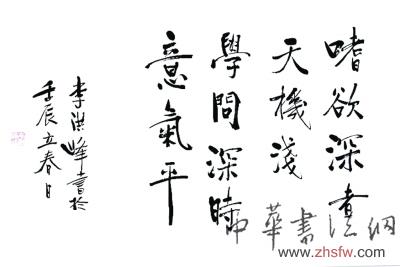 嗜欲深者
天機淺
學問深時
意氣平
李洪峰書於
壬辰立春日
中華書法網
www.zhsfw.com